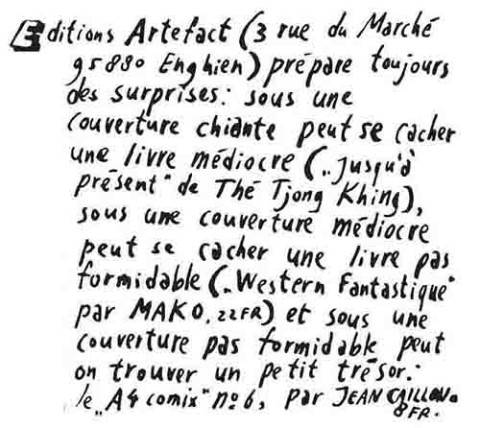 Editions Artefact (3 rue du Marché
95880 Enghien) prépare toujours
des surprises: sous une
couverture chiante peut se cacher
une livre médiocre („Jusqu'à
présent" de Thé Tjong Khing),
sous une couverture médiocre
peut se cacher une livre pas
formidable („Western Fantastique"
par MAKO, 22FR) et sous une
couverture pas formidable peut
on trouver un petit trésor:
le „A4 comix" no 6, par JEAN
8FR.